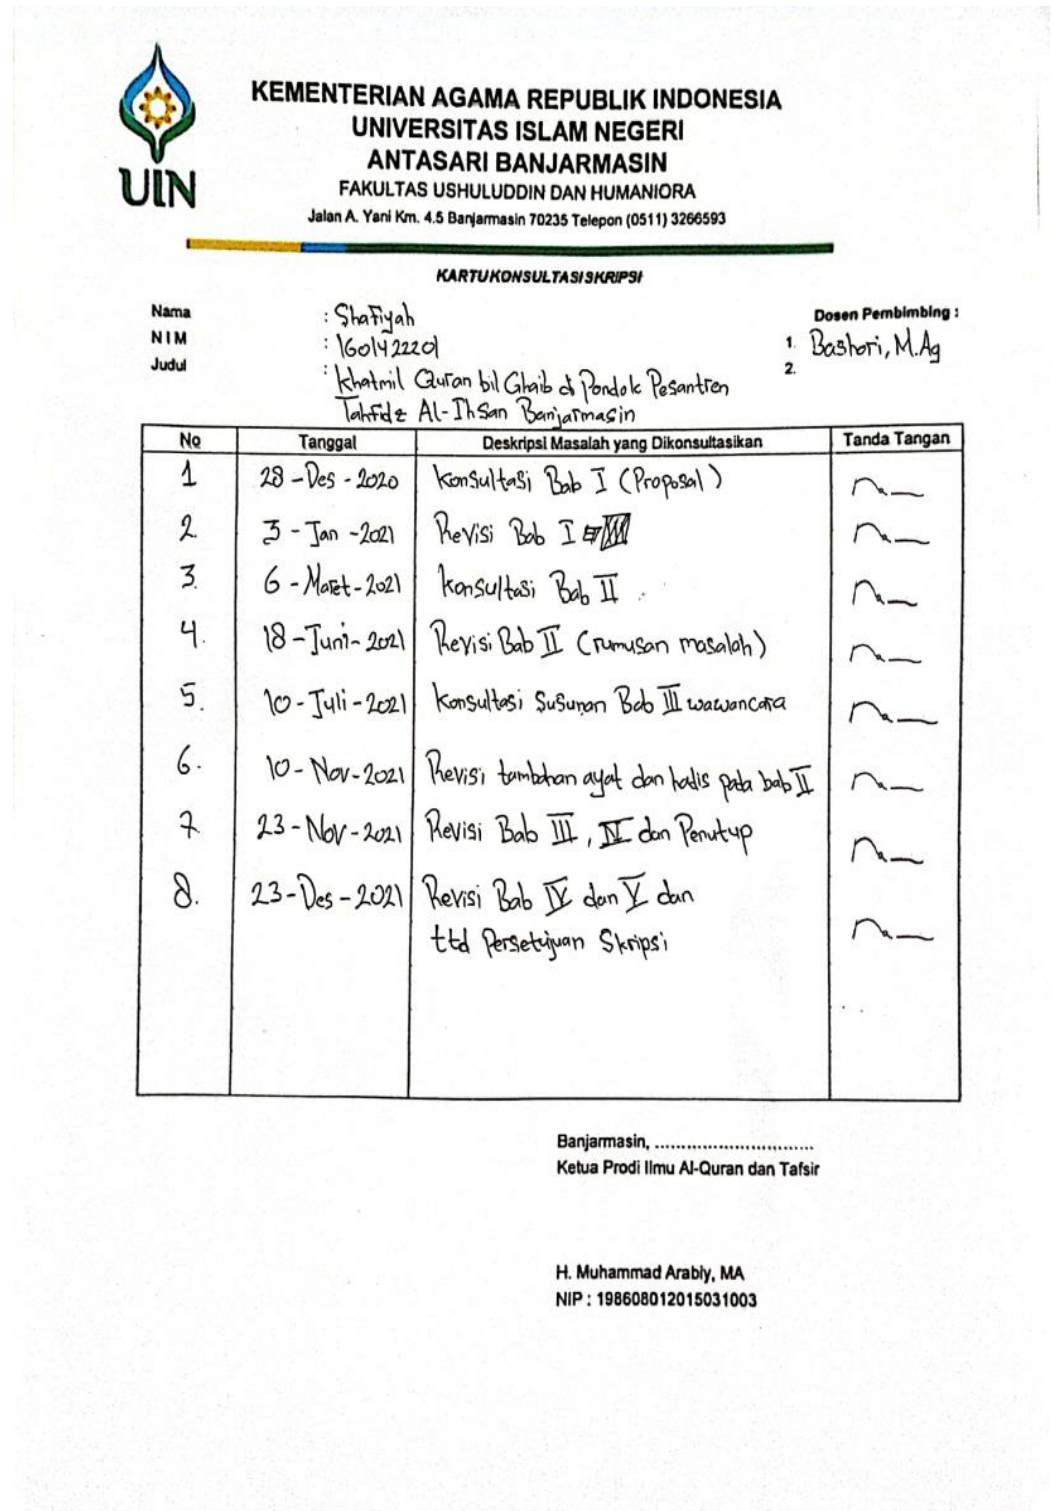 KEMENTERIAN AGAMA REPUBLIK INDONESIA
UNIVERSITAS ISLAM NEGERI
ANTASARI BANJARMASIN
FAKULTAS USHULUDDIN DAN HUMANIORA
Jalan A. Yani Km. 4.5 Banjarmasin 70235 Telepon (0511) 3266593
UIN
KARTU KONSULTASI SKRIPSI
Nama : Shafiyah
NIM : 160142201
Judul : Khatmil Quran bil Ghaib di Pondok Pesantren
Tahfidz Al-Ihsan Banjarmasin
Dosen Pembimbing :
1. Bashori, M.Ag
2.
No Tanggal Deskripsi Masalah yang Dikonsultasikan Tanda Tangan
1 28-Des-2020 Konsultasi Bab I (Proposal)
2. 3-Jan-2021 Revisi Bab I
3. 6-Maret-2021 Konsultasi Bab II
4. 18-Juni-2021 Revisi Bab II (rumusan masalah)
5. 10-Juli-2021 Konsultasi Susunan Bab III wawancara
6. 10-Nov-2021 Revisi tambahan ayat dan hadis pada bab II
7. 23-Nov-2021 Revisi Bab III, IV dan Penutup
8. 23-Des-2021 Revisi Bab IV dan V dan
ttd Persetujuan Skripsi
Banjarmasin, ..............................
Ketua Prodi Ilmu Al-Quran dan Tafsir
H. Muhammad Arabiy, MA
NIP : 198608012015031003